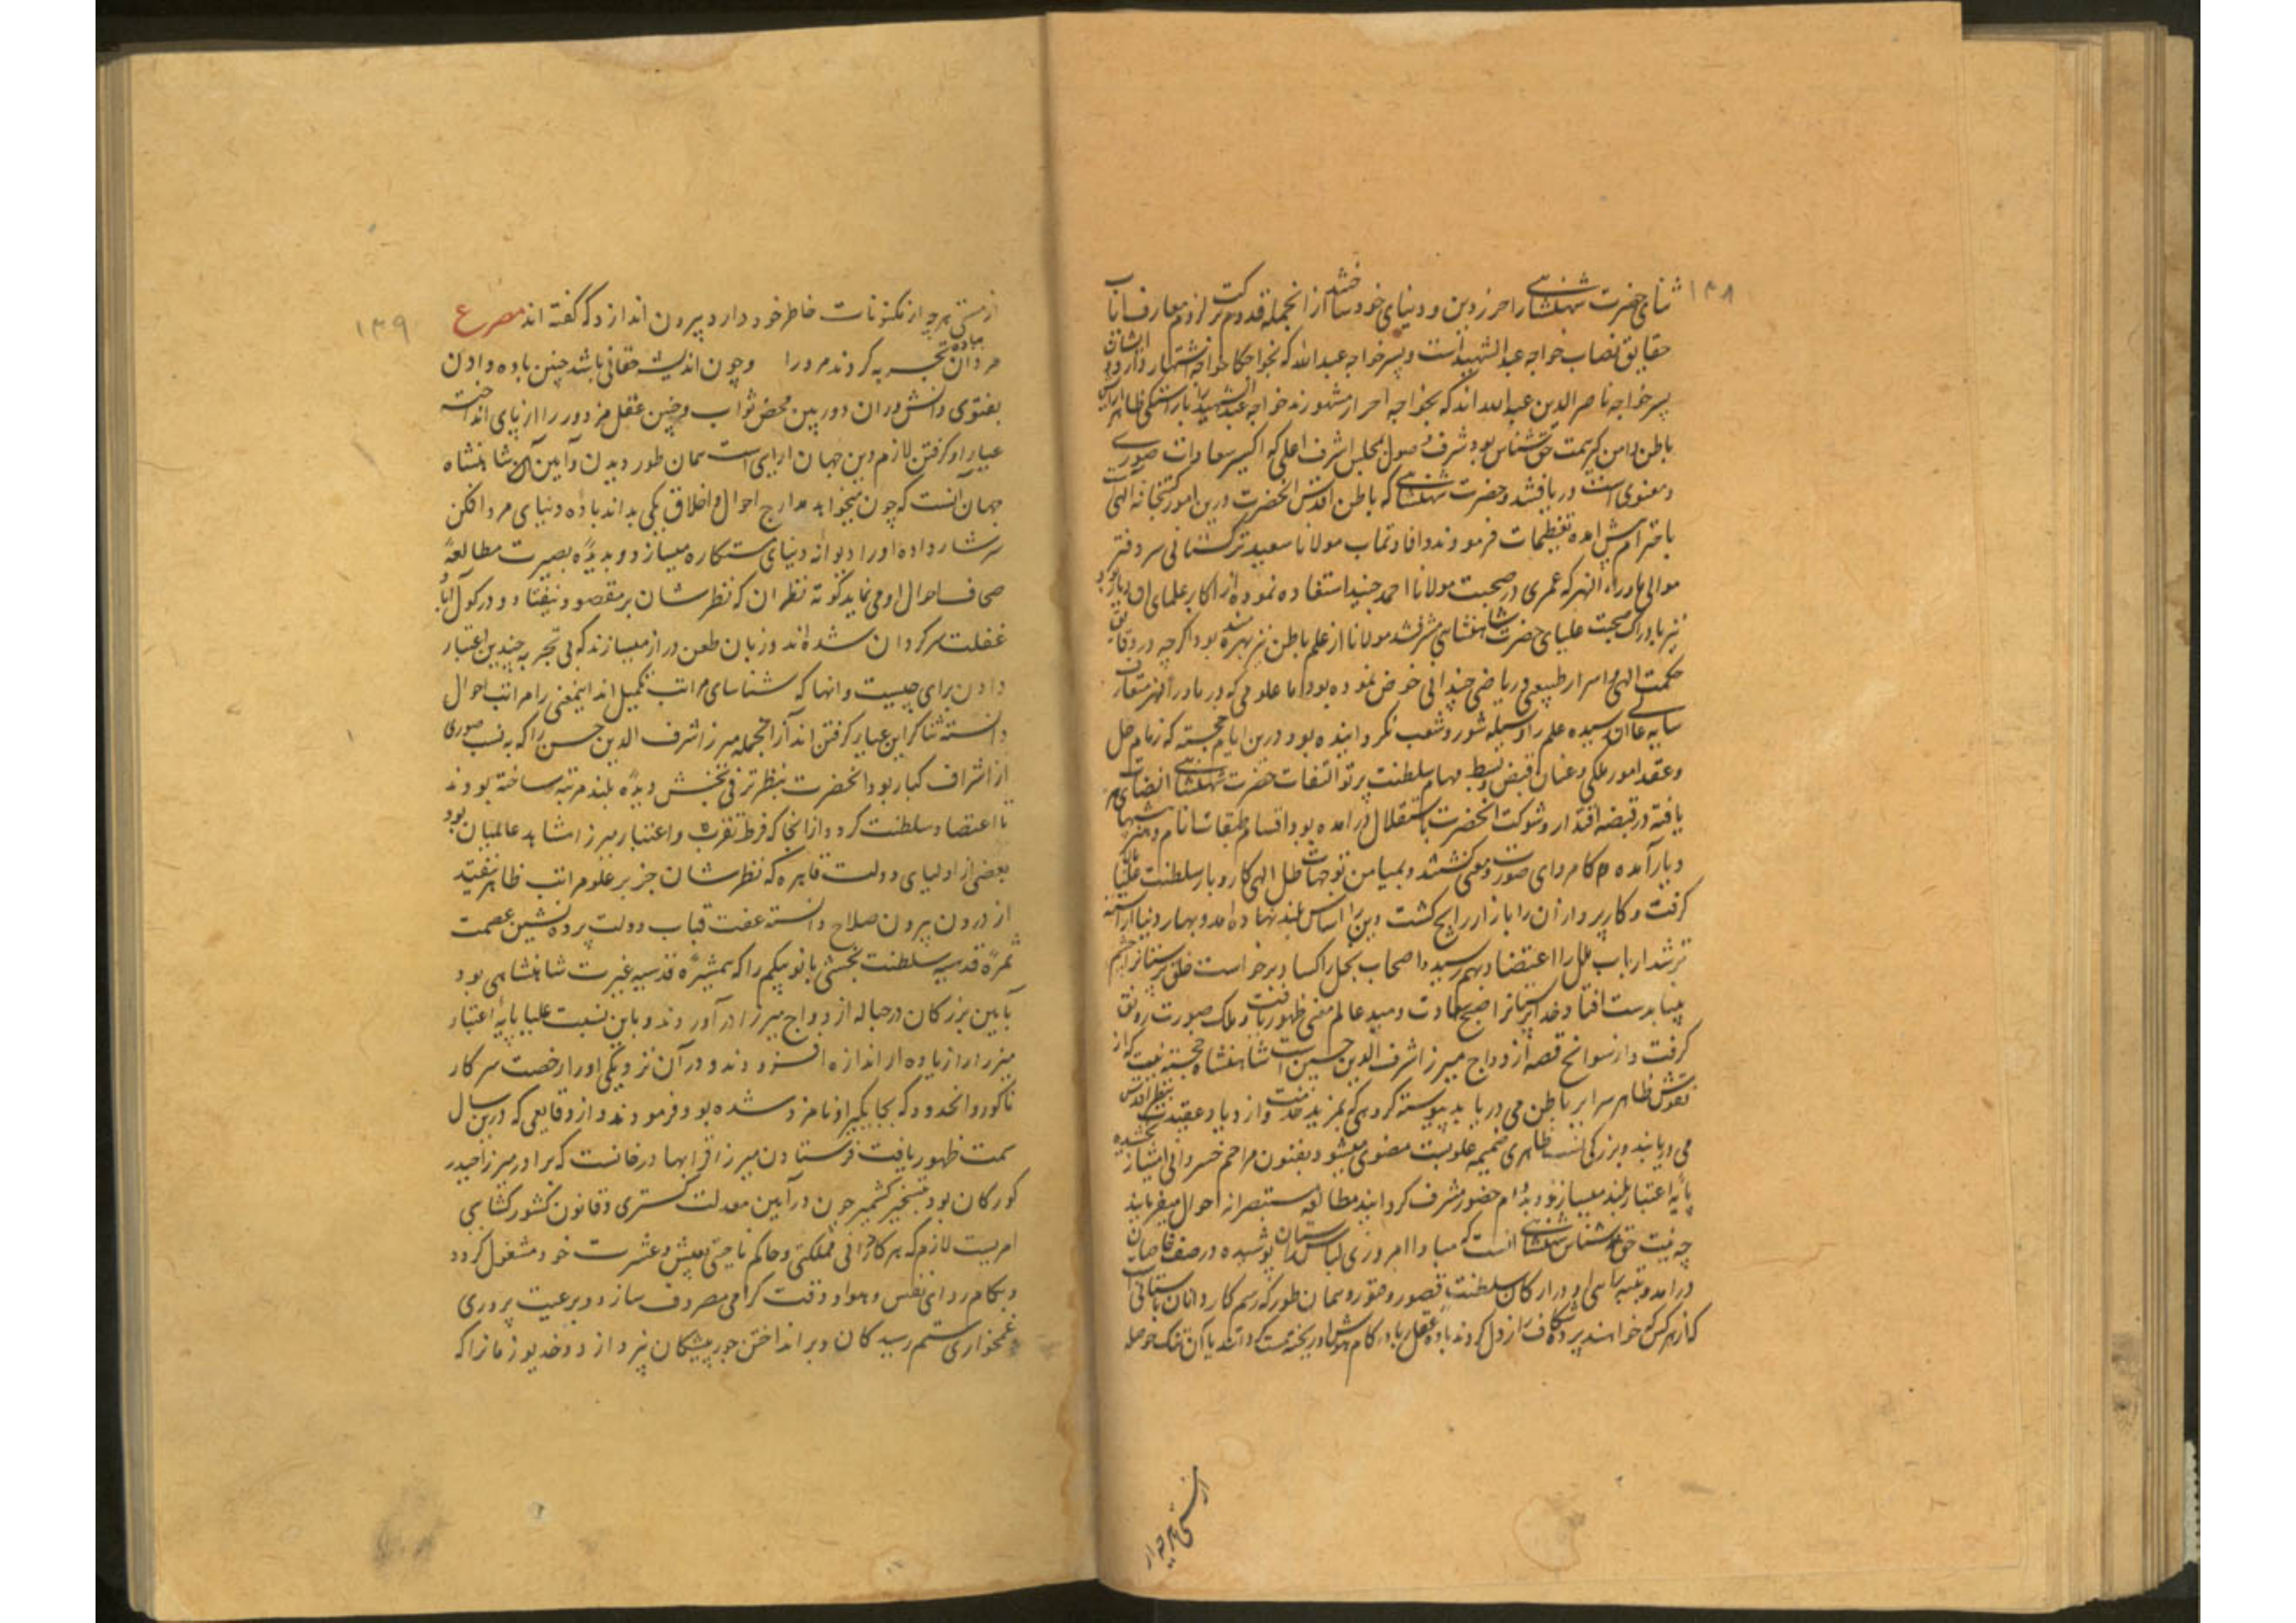 ۱۳۸
ثنای حضرت شهنشاهی را حرز دین و دنیای خود ساختند از انجمله قدوم برکت لزوم معارف مآب
حقایق نصاب خواجه عبد الشهید است و پسر خواجه عبد الله که بخواجگا خواجه اشتهار دارد و ایشان
پسر خواجه ناصر الدین عبد الله اند که بخواجه احرار مشهورند خواجه عبد الشهید را باراستگی ظاهر
باطن دامن گیر همت حق شناس بود شرف وصول بمجلس اشرف اعلی که اکسیر سعادات صوری
و معنوی است دریافتند و حضرت شهنشاهی که باطن اقدس آنحضرت درین امور کتخانه الهی
باحترام پیش امده تعظیمات فرمودند و افادتماب مولانا سعید ترکستانی سر دفتر
موالی ماوراء النهر که عمری در صحبت مولانا احمد جنید استفاده نموده از اکابر علمای ان دیار بود
نیز بادراک صحبت علیای حضرت شاهنشاهی مشرف شد مولانا از علم باطن نیز بهره مند بود اگرچه در دقایق
حکمت الهی و اسرار طبیعی و ریاضی چندانی خوض ننموده بود اما علومی که در ماوراء النهر متعارف
بپایه عالی ان رسیده علم را وسیله شور و شعب نگردانیده بود و درین ایام خجسته که زمام حل
و عقد امور ملکی و عنان قبض و بسط مهام سلطنت پرتو التفات حضرت شهنشاهی
یافته در قبضه اقتدار و شوکت انحضرت باستقلال درامده بود اقسام طبقات انام
و بار آمده کامروای صورت و معنی گشتند و بمیامن توجهات ظل الهی کار و بار سلطنت
گرفت و کارپردازان را بازار رایج گشت دین را اساس بلند نهاده امد و بهار دنیا اراسته
تر شد ارباب علل را اعتضاد بهم رسید و اصحاب بخل را کساد برخاست خلق پرستانرا چشم
بینا بدست افتاد و خداپرستانرا صبح سعادت دمید عالم معنی ظهور یافت و ملک صورت رونق
گرفت و از سوانح قصه ازدواج میرزا شرف الدین حسین است شاهنشاه خجسته نیت که از
نقوش ظاهر سرایر باطن می دریابد پیوسته گروهی که بمزید خدمت و ازدیاد عقیدت بنظر اقدس
می دریابند و بزرگی نسب ظاهری ضمیمه علو نسبت معنوی میشود بفنون مراحم خسروانی امتیاز بخشیده
پایه اعتبار بلند میسازند و بدوام حضور مشرف گردانیده مطالعه مستبصرانه احوال میفرمایند
چه نیت حق اساس شهنشاهی انست که مبادا امروزی لباس راستان پوشیده در صف خاصان
درامده و تنبه باسی او در ارکان سلطنت قصور و فتور و همان طور که رسم کاردانان باستانی است
که از هر کس خواهند پرده شکاف راز دل گردند باده عقل ربا در کام هوش او ریخته مست گردانند تا آن تنک حوصله
از مستی هر چه از
۱۳۹
از مستی هر چه از مکنونات خاطر خود دارد بیرون اندازد که گفته اند مصرع
مردان بباده تجربه کردند مرد را و چون اندیشه حقانی باشد چنین باده دادن
بفتوی دانشوران دوربین محض ثواب و چنین عقل مزدور را از پای انداخته
عیار او گرفتن لازم دین جهان ارایی است همان طور دیدن و آیین آن شاهنشاه
جهان انست که چون میخواهد مدارج احوال و اخلاق یکی بداند باده دنیای مرد افکن
سرشار داده او را دیوانه دنیای ستمکاره میسازد و بدیده بصیرت مطالعه
صحایف احوال او می نماید کوته نظران که نظرشان بر مقصود نیفتاده و در گول آباد
غفلت سرگردان شده اند و زبان طعن دراز میسازند که بی تجربه چندین اعتبار
دادن برای چیست و انها که شناسای مراتب تکمیل اند اینمعنی را مراتب احوال
دانسته ثناگر این عیار گرفتن اند از انجمله میرزا شرف الدین حسین را که به نسب صوری
از اشراف کبار بود انحضرت بنظر ترقی بخش دیده بلند مرتبه ساخته بودند
تا اعتضاد سلطنت گردد و از انجا که فرط تقرب و اعتبار میرزا مشاهد عالمیان بود
بعضی از اولیای دولت قاهره که نظرشان جز بر علو مراتب ظاهر نیفتد
از درون بیرون صلاح دانسته عفت قباب دولت پرده نشین عصمت
ثمره قدسیه سلطنت بخشی بانو بیگم را که همشیره قدسیه غیرت شاهنشاهی بود
بآیین بزرگان در حباله ازدواج میرزا درآوردند و باین نسبت علیا پایه اعتبار
میرزا را زیاده از اندازه افزودند و در آن نزدیکی او را رخصت سرکار
ناگور و انحدود که بجایگیر او نامزد شده بود فرمودند و از وقایعی که درین سال
سمت ظهور یافت فرستادن میرزا قرا بهادر خانست که برادر میرزا حیدر
گورکان بود بتسخیر کشمیر چون در آیین معدلت گستری و قانون کشور گشایی
امریست لازم که هر گاه والی مملکتی و حاکم ناحیتی بعیش و عشرت خود مشغول گردد
و بکام روای نفس و هوا وقت گرامی مصروف سازد و برعیت پروری
و غمخواری ستم رسیدگان و برانداختن جور پیشگان نپردازد و خدیو زمانرا که